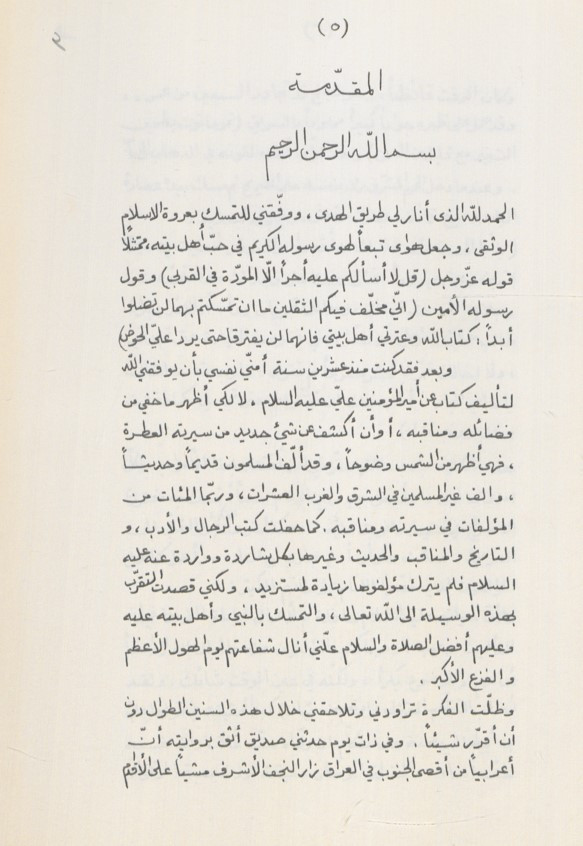 (٥)
المقدّمة
بسم الله الرحمن الرحيم
الحمد لله الذى أنار لي طريق الهدى ، ووفّقني للتمسك بعروة الاسلام
الوثقى ، وجعل هواى تبعاً لهوى رسوله الكريم في حبّ أهل بيته ممتثلاً
قوله عزّ وجل (قل لا أسألكم عليه أجراً الّا المودّة في القربى) وقول
رسوله الأمين (انّي مخلّف فيكم الثقلين ما ان تمسّكتم بهما لن تضلوا
أبداً : كتاب الله وعترتي أهل بيتي فانهما لن يفترقا حتى يردا عليّ الحوض)
وبعد فقد كنت منذ عشرين سنة أمنّي نفسي بأن يوفقني الله
لتأليف كتاب عن أمير المؤمنين عليّ عليه السلام ، لا لكي أظهر ما خفي من
فضائله ومناقبه ، أو أن أكشف عن شيء جديد من سيرته العطرة
، فهي أظهر من الشمس وضوحاً ، وقد ألّف المسلمون قديماً وحديثاً
، والف غير المسلمين في الشرق والغرب العشرات ، وربّما المئات من
المؤلفات في سيرته ومناقبه . كما حفلت كتب الرجال والأدب ، و
التاريخ والمناقب والحديث وغيرها بكل شاردة وواردة عنه عليه
السلام فلم يترك مؤلفوها زيادة لمستزيد ، ولكني قصدت التقرّب
بهذه الوسيلة الى الله تعالى ، والتمسك بالنبي وأهل بيته عليه
وعليهم أفضل الصلاة والسلام علّني أنال شفاعتهم يوم الهول الأعظم
والفزع الأكبر .
وظلّت الفكرة تراودني وتلاحقني خلال هذه السنين الطوال دون
أن أقرّر شيئاً . وفي ذات يوم حدثني صديق أثق بروايته أنّ
أعرابياً من أقصى الجنوب في العراق زار النجف الأشرف مشياً على الأقدام